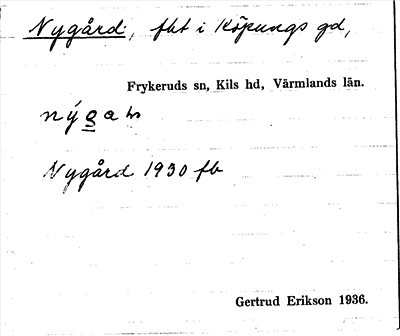 Nygård, fht i Köpungs gd,
Frykeruds sn, Kils hd, Värmlands län.
Nygård 1930 fb
Gertrud Erikson 1936.